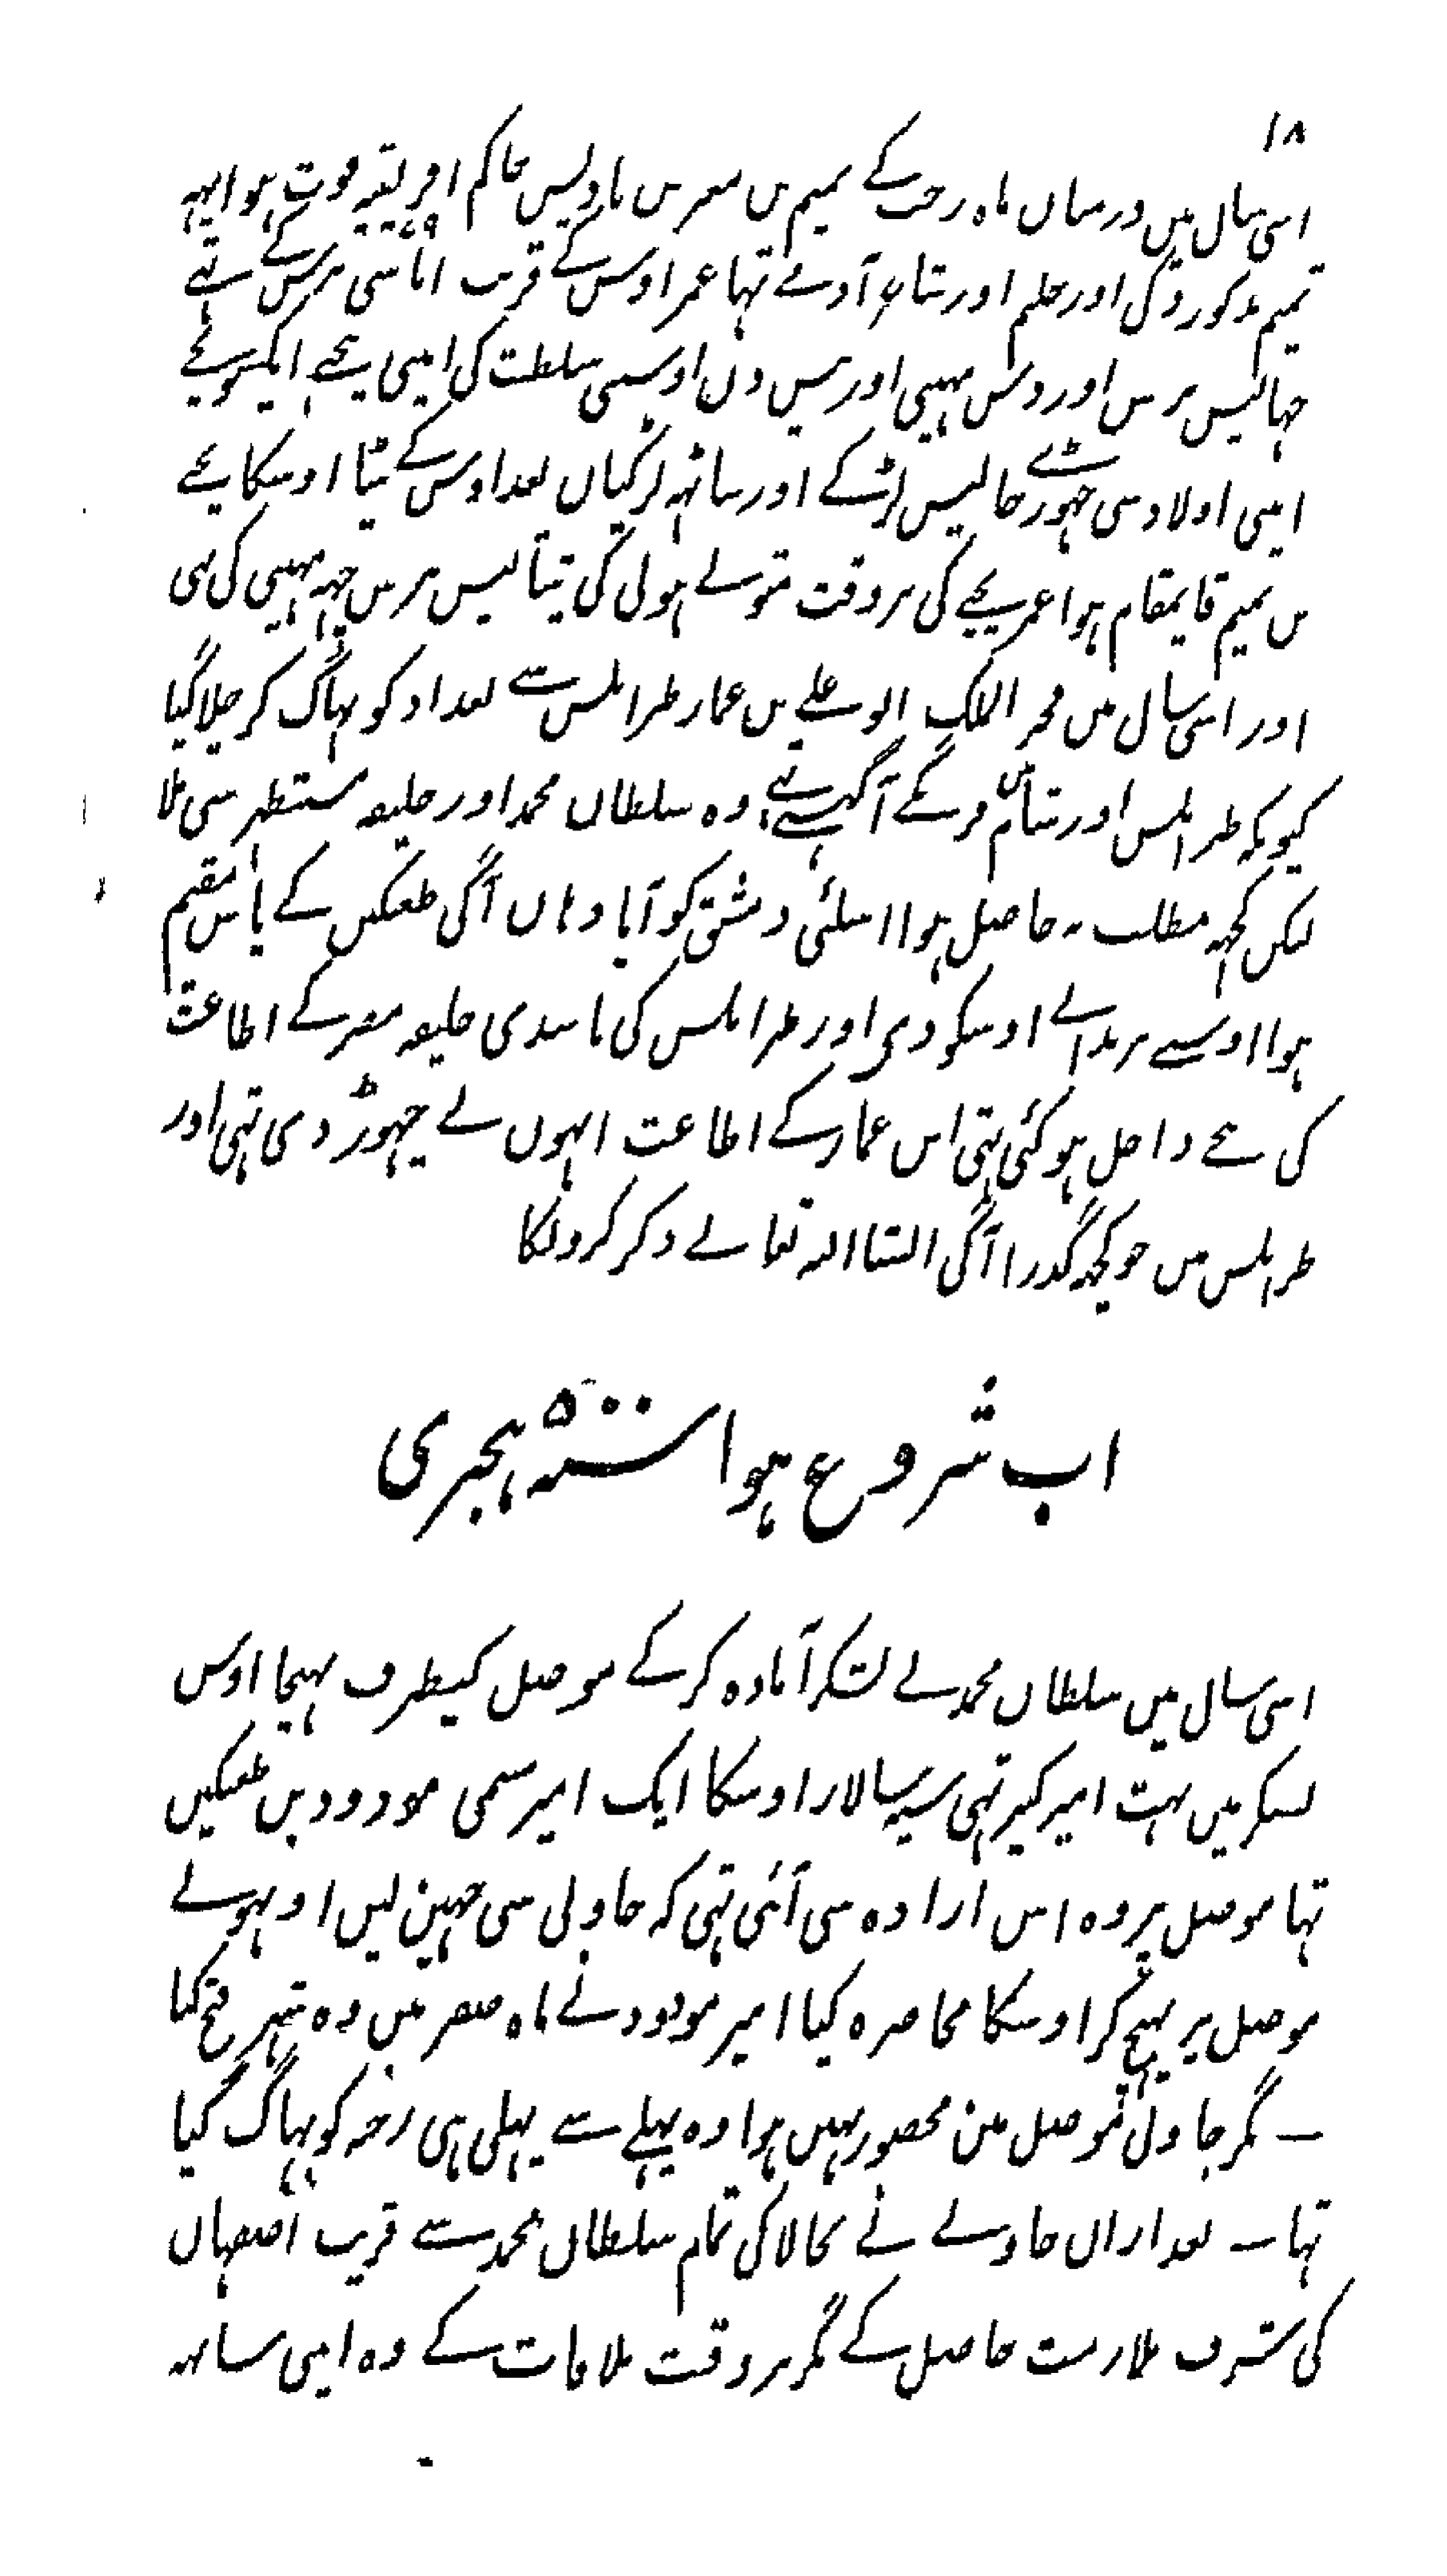 ۱۸
اسی سال میں درمیان ماہ رجب کے تمیم بن معز بن بادیس حاکم افریقیہ فوت ہوا یہہ
تمیم مذکور ذکی اور حلیم اور شاعر آدمے تہا عمر اوس کے قریب اناسی ۷۹ برس کے تہے
چہالیس برس اور دس مہینی اور بیس دن اوسنی سلطنت کی اپنی پیچہے ایکسو بیٹے
اپنی اولاد سی چہوڑے چالیس لڑکے اور ساٹہہ لڑکیاں بعد اوس کے بیٹا اوسکا یحیے
بن تمیم قایمقام ہوا عمر یحیے کی بروقت متولے ہونی کی تینتالیس برس چہہ مہینی کی تہی
اور اسی سال میں فخر الملک ابو علے بن عمار طرابلس سے بغداد کو بہاگ کر چلا گیا
کیونکہ طرابلس اور شام میں فرنگے آ گہسے تہے وہ سلطان محمد اور خلیفہ مستظہر سی ملا
لیکن کچہہ مطلب نہ حاصل ہوا اسلئی دمشق کو آیا وہاں آکی طغتکین کے پاس مقیم
ہوا اوسنے زبدانے اوسکو دی اور طرابلس کی باشندی خلیفہ مصر کے اطاعت
کی نیچے داخل ہو گئی تہی ابن عمار کے اطاعت انہوں نے چہوڑ دی تہی اور
طرابلس میں جو کچہہ گذرا آگی انشا اللہ تعالے ذکر کرونگا
اب شروع ہوا سنہ ۵۰۲ ہجری
اسی سال میں سلطان محمد نے لشکر آمادہ کر کے موصل کیطرف بہیجا اوس
لشکر میں بہت امیر کبیر تہی سپہ سالار اوسکا ایک امیر مسمی مودود بن طغتکین
تہا موصل پر وہ اس ارادہ سی آئی تہی کہ جاولی سی چہین لیں اونہونے
موصل پر پہنچ کر اوسکا محاصرہ کیا امیر مودود نے ماہ صفر میں وہ شہر فتح کیا
ــ مگر جاولی موصل میں محصور نہیں ہوا وہ پہلے سے پہلی ہی رحبہ کو بہاگ گیا
تہا ــ بعد ازاں جاولے نے بحالاکی تمام سلطان محمد سے قریب اصفہان
کی شرف ملازمت حاصل کے مگر بروقت ملاقات کے وہ اپنی ساتہہ